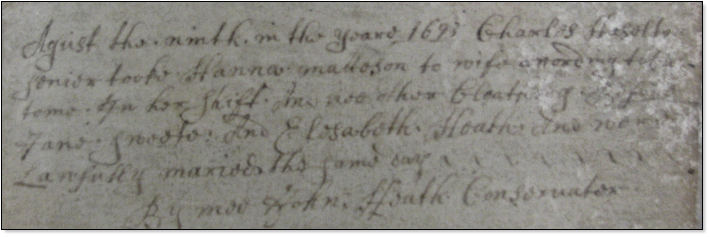 Agust the ninth in the yeare 1693 Charles Hasellt
senier tooke Hanna Mattoson to wife acording to
tome In her shift And noe other Cloathing
Jane Sweete And Elesabeth Heath And
Lawfully maried the same day
By mee John Heath Conservater